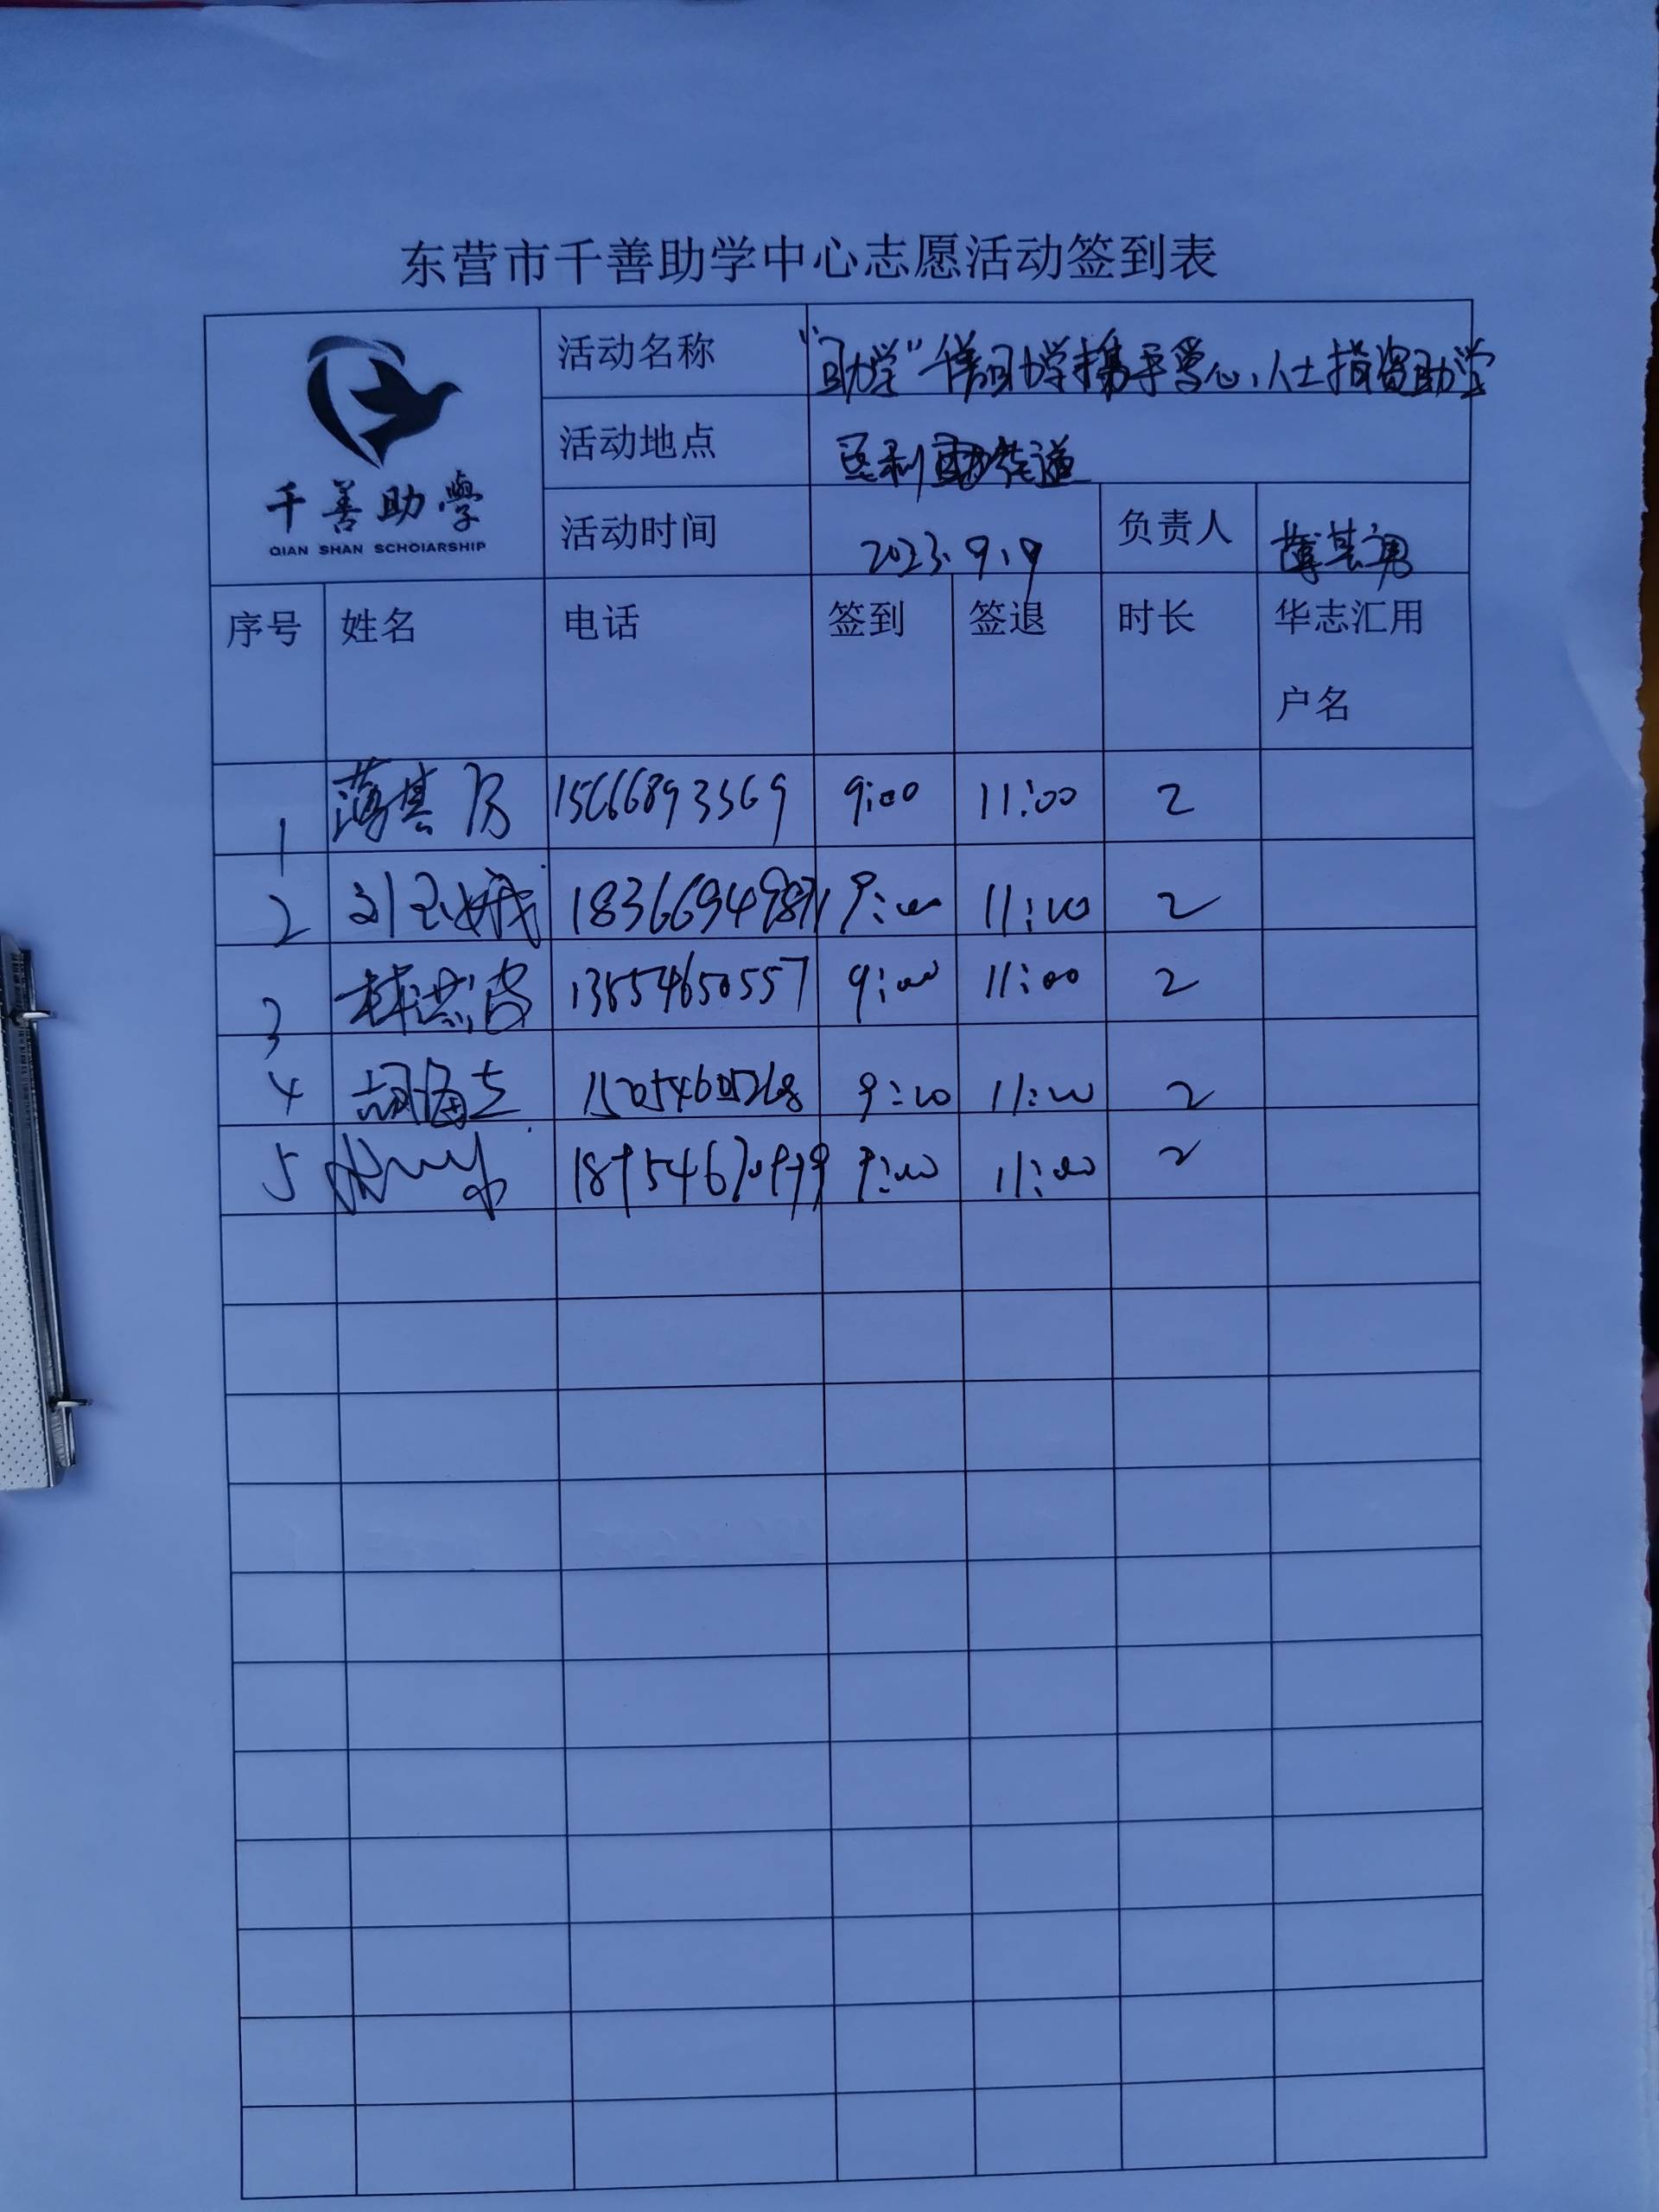 东营市千善助学中心志愿活动签到表
千善助學
QIAN SHAN SCHOIARSHIP
活动名称 "助学"千善助学携手爱心人士捐资助学
活动地点 垦利街道
活动时间 2023.9.9 负责人 薄其勇
序号 姓名 电话 签到 签退 时长 华志汇用
户名
1 薄其 15666893369 9:00 11:00 2
2 刘玉娥 18366949871 9:00 11:00 2
3 林洪 13854650557 9:00 11:00 2
4 胡海 15054605268 9:00 11:00 2
5 9:00 11:00 2